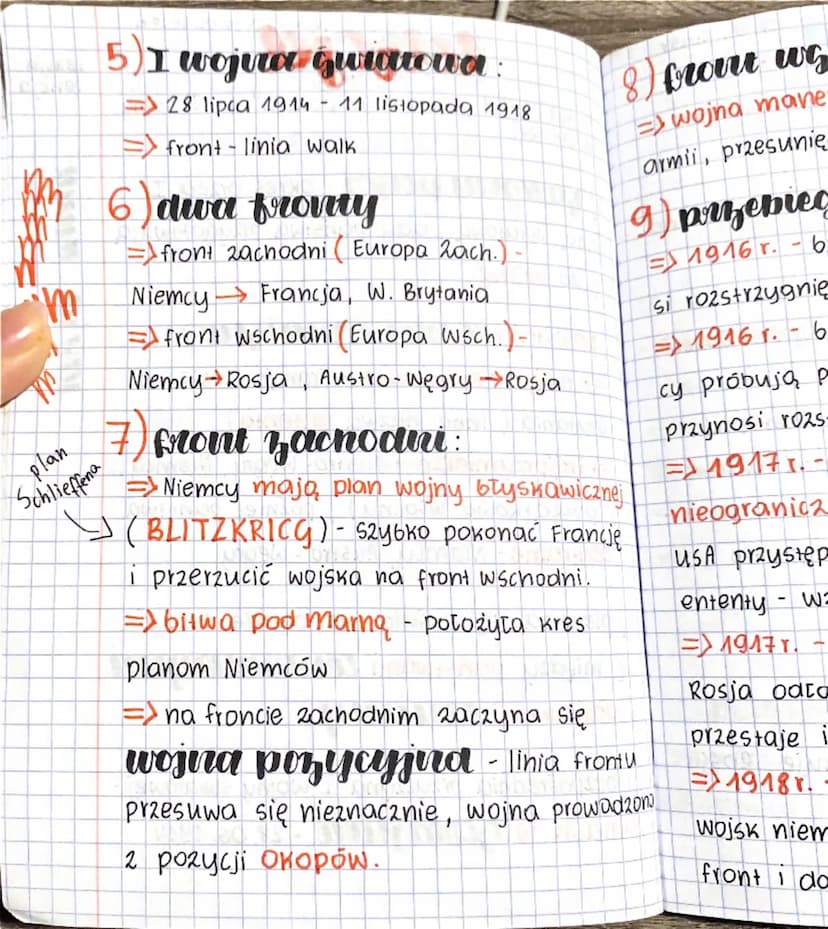 5) I wojna światowa:
=> 28 lipca 1914 - 11 listopada 1918
=> front - linia walk
6) dwa fronty
=> front zachodni (Europa Zach.) -
Niemcy → Francja, W. Brytania
=> front wschodni (Europa Wsch.) -
Niemcy → Rosja, Austro-Węgry → Rosja
7) front zachodni:
plan
Schlieffena
=> Niemcy mają plan wojny błyskawicznej
(BLITZKRICG) - szybko pokonać Francję
i przerzucić wojska na front wschodni.
=> bitwa pod Marną - położyła kres
planom Niemców
=> na froncie zachodnim zaczyna się
wojna pozycyjna - linia frontu
przesuwa się nieznacznie, wojna prowadzona
z pozycji OKOPÓW.
8) front
=> wojna
armii,
9)
=> 1916 r. -
si
=> 1916 r. -
cy próbują
przynosi
=> 1917 r. -
USA
ententy -
=> 1917 r. -
Rosja
przestaje
=> 1918 r.
wojsk
front i